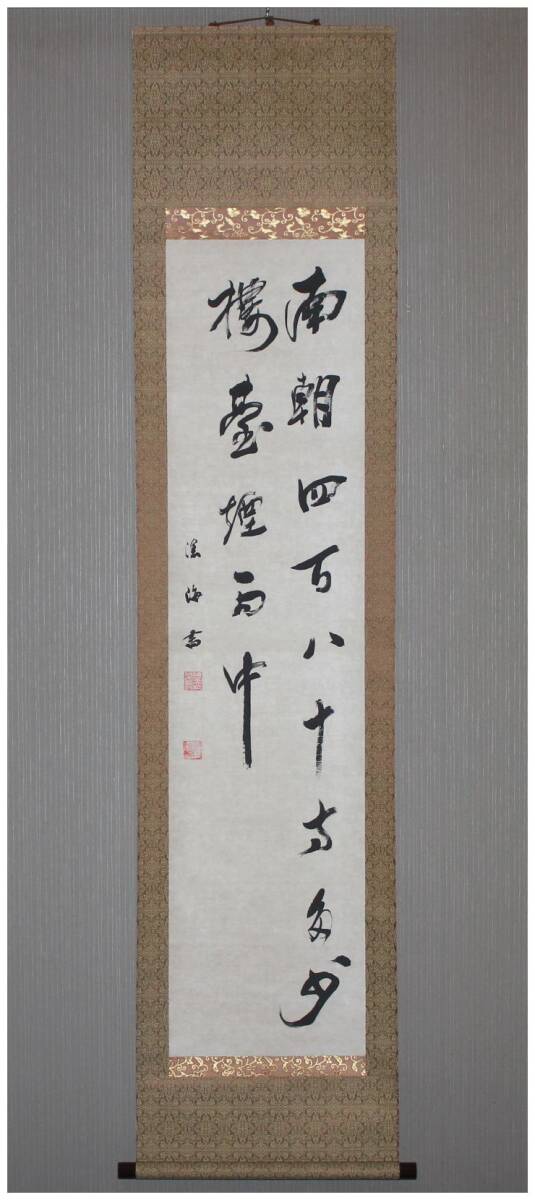 南朝四百八十寺多少
樓臺煙雨中